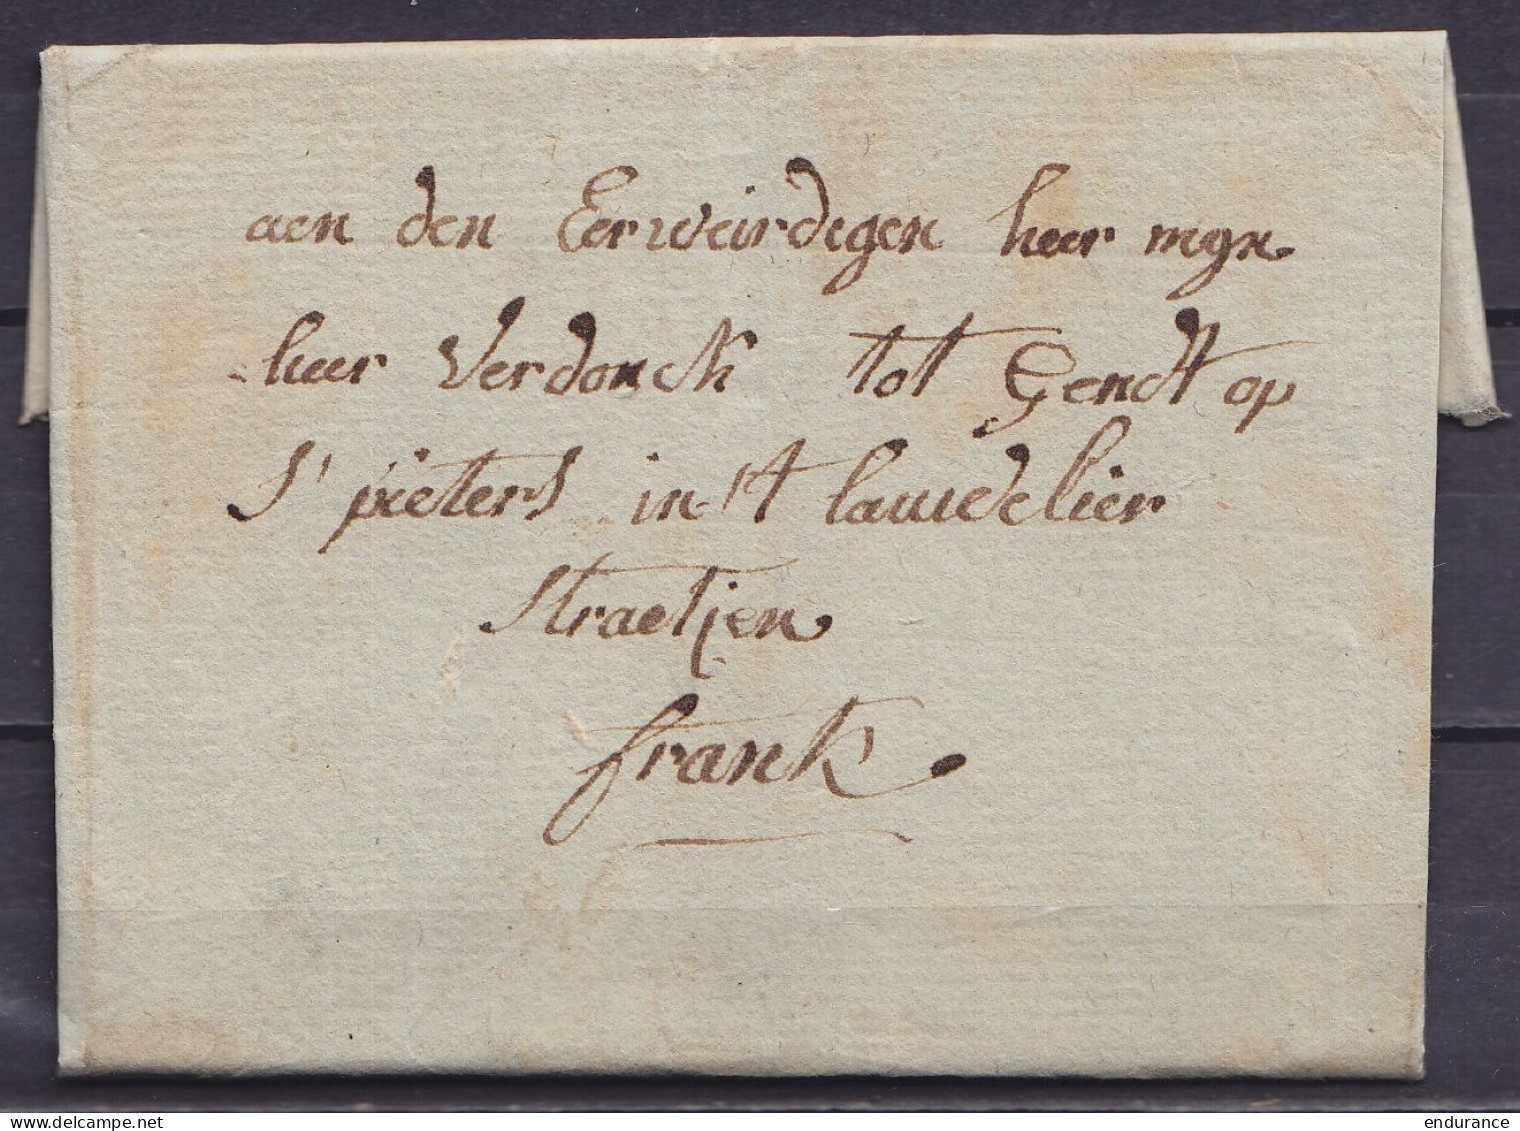 aen den Eerweirdigen heer myn
heer Verdonck tot Gendt op
S' pieters in 't lauwdelier
straetjen
frank
endurance